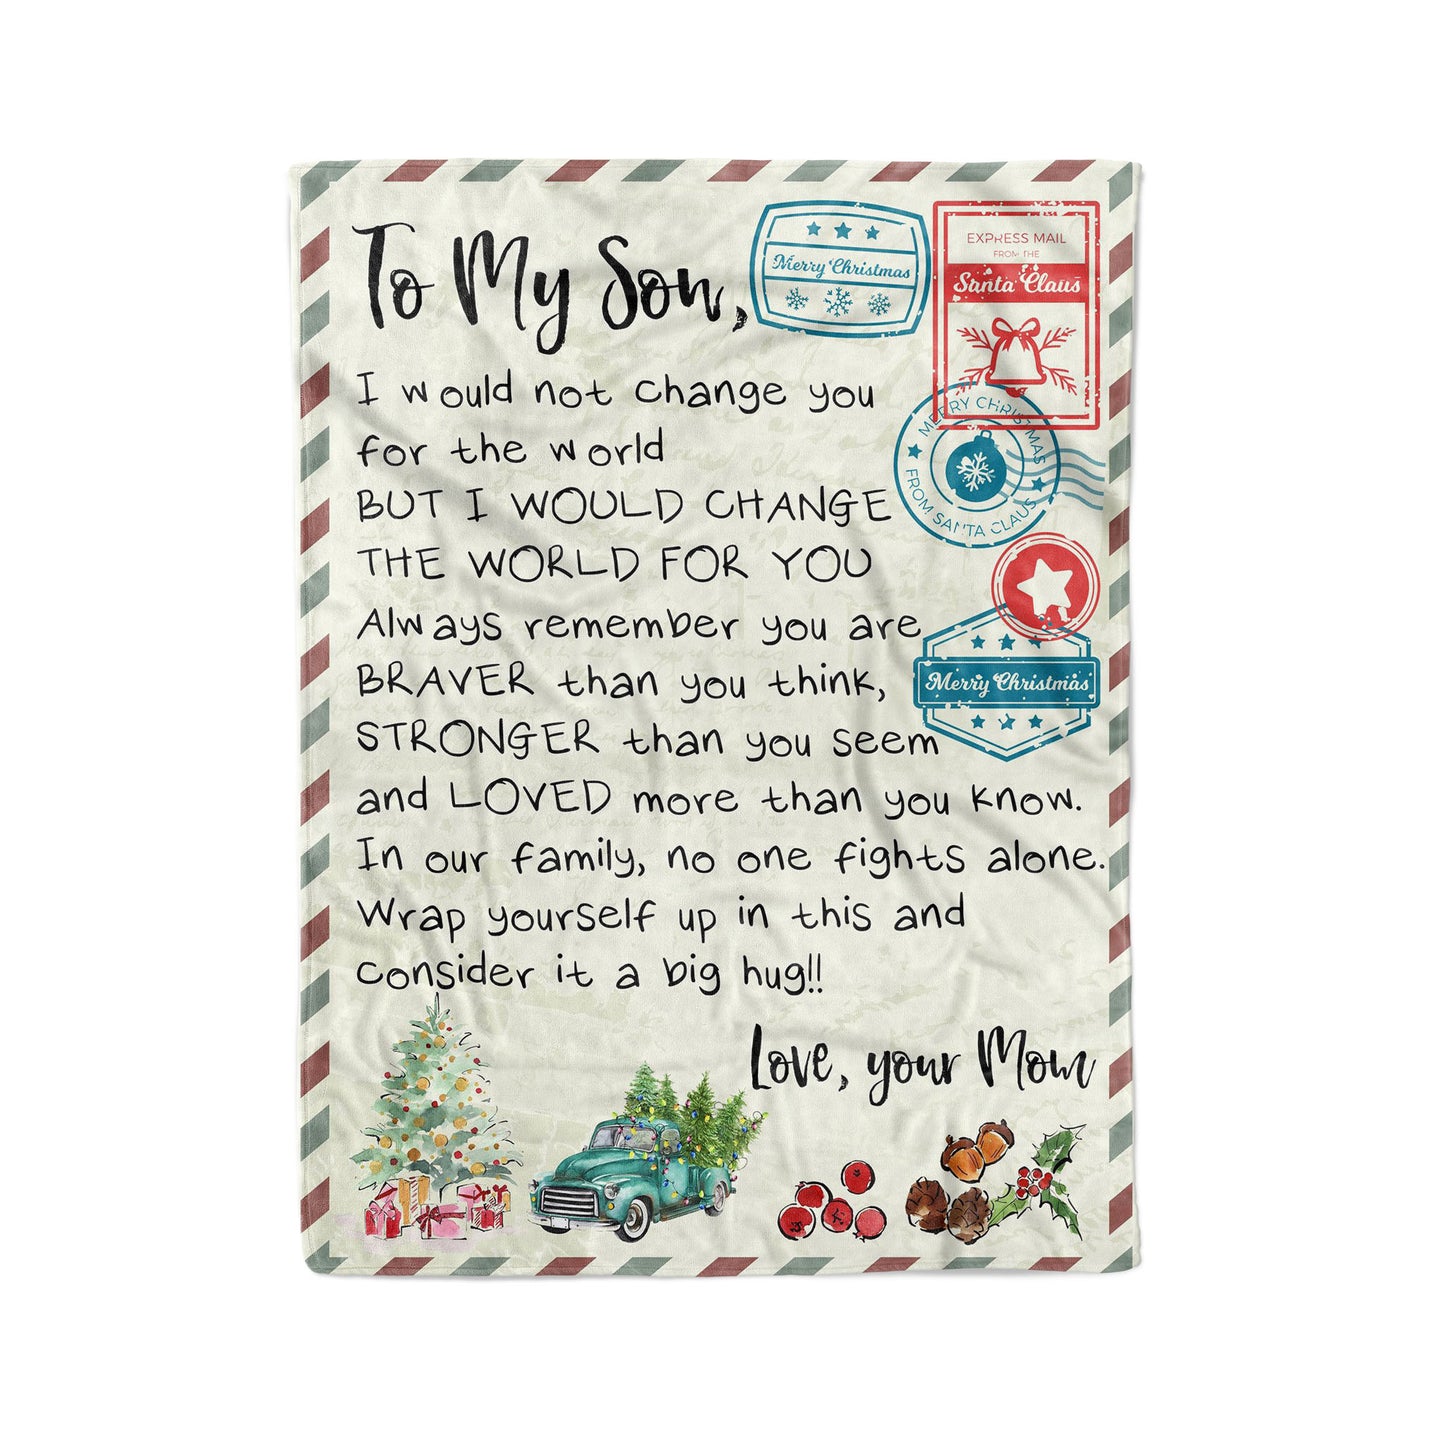 To My Son,
I would not change you
for the world
BUT I WOULD CHANGE
THE WORLD FOR YOU
Always remember you are
BRAVER than you think,
STRONGER than you seem
and LOVED more than you know.
In our family, no one fights alone.
Wrap yourself up in this and
consider it a big hug!!
Love, your Mom
Merry Christmas
EXPRESS MAIL
FROM THE
Santa Claus
MERRY CHRISTMAS
FROM SANTA CLAUS
Merry Christmas